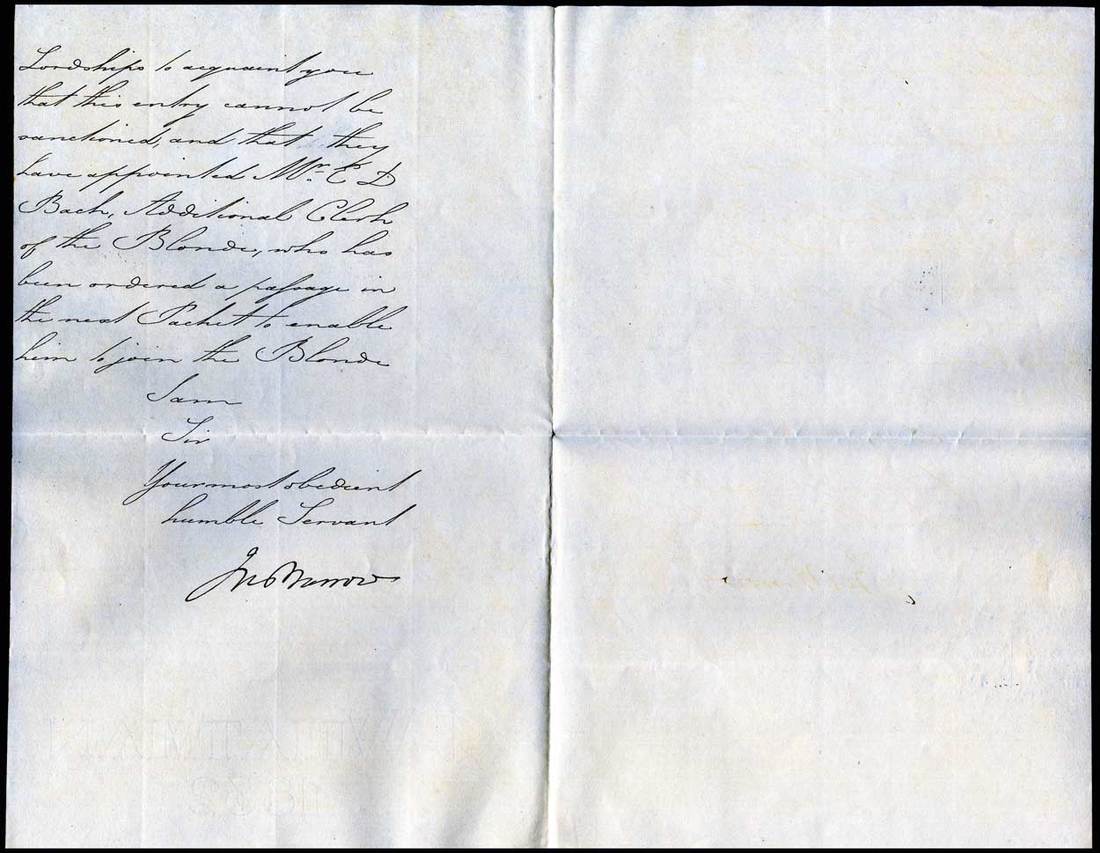 Lordships to acquaint you
that this entry cannot be
sanctioned, and that they
have appointed Mr. E D
Bach, Additional Clerk
of the Blonde, who has
been ordered a passage in
the next Packet to enable
him to join the Blonde
I am
Sir
Your most obedient
humble Servant
Jno Barrow
J WHATMAN